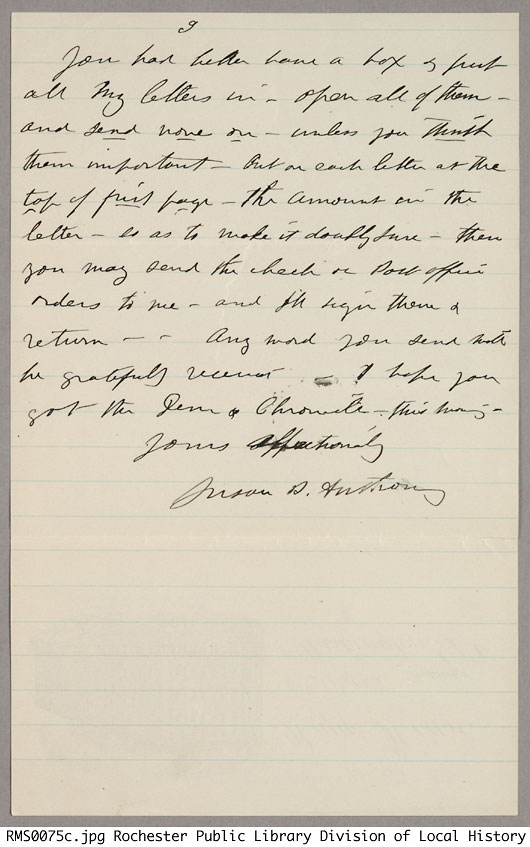 9
You had better have a box & put
all my letters in - open all of them -
and send none on - unless you think
them important - Put on each letter at the
top of first page - the amount in the
letter - so as to make it doubly sure - then
you may send the check or Post office
orders to me - and I'll sign them &
return - - Any word you send will
be gratefully received - I hope you
got the Dem & Chronicle - this
Yours affectionately
Susan B. Anthony
RMS0075c.jpg Rochester Public Library Division of Local History